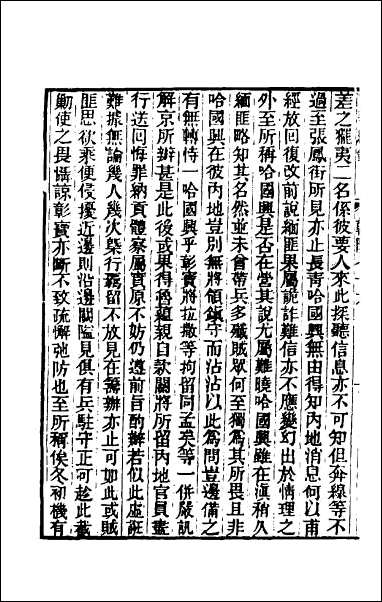 差之玀夷二名係彼要人來此探聽信息亦不可知但奔線等不
過至張鳳街所見亦止長青哈國興無由得知內地消息何以甫
經放回復改前說緬匪果屬詭詐難信亦不應變幻出於情理之
外至所稱哈國興是否在營其說尤屬難曉哈國興雖在滇稍久
緬匪略知其名然並未曾帶兵多殲賊眾何至獨為其所畏且非
哈國興在彼內地豈別無將領鎮守而沾沾以此為問豈邊備之
有無轉恃一哈國興乎彰寶將拉撒等拘留同孟矣等一併嚴訊
解京所辦甚是此後或果得魯蘊親自欵關將所留內地官員盡
行送回悔罪納貢體察屬實原不妨仍遵前旨酌辦若似此虛誑
難據無論幾人幾次槩行羈留不放見在籌辦亦止可如此或賊
匪思欲乘便侵擾近邊則沿邊關隘見俱有兵駐守正可趁此截
勦使之畏懾諒彰寶亦斷不致疏懈弛防也至所稱俟冬初機有